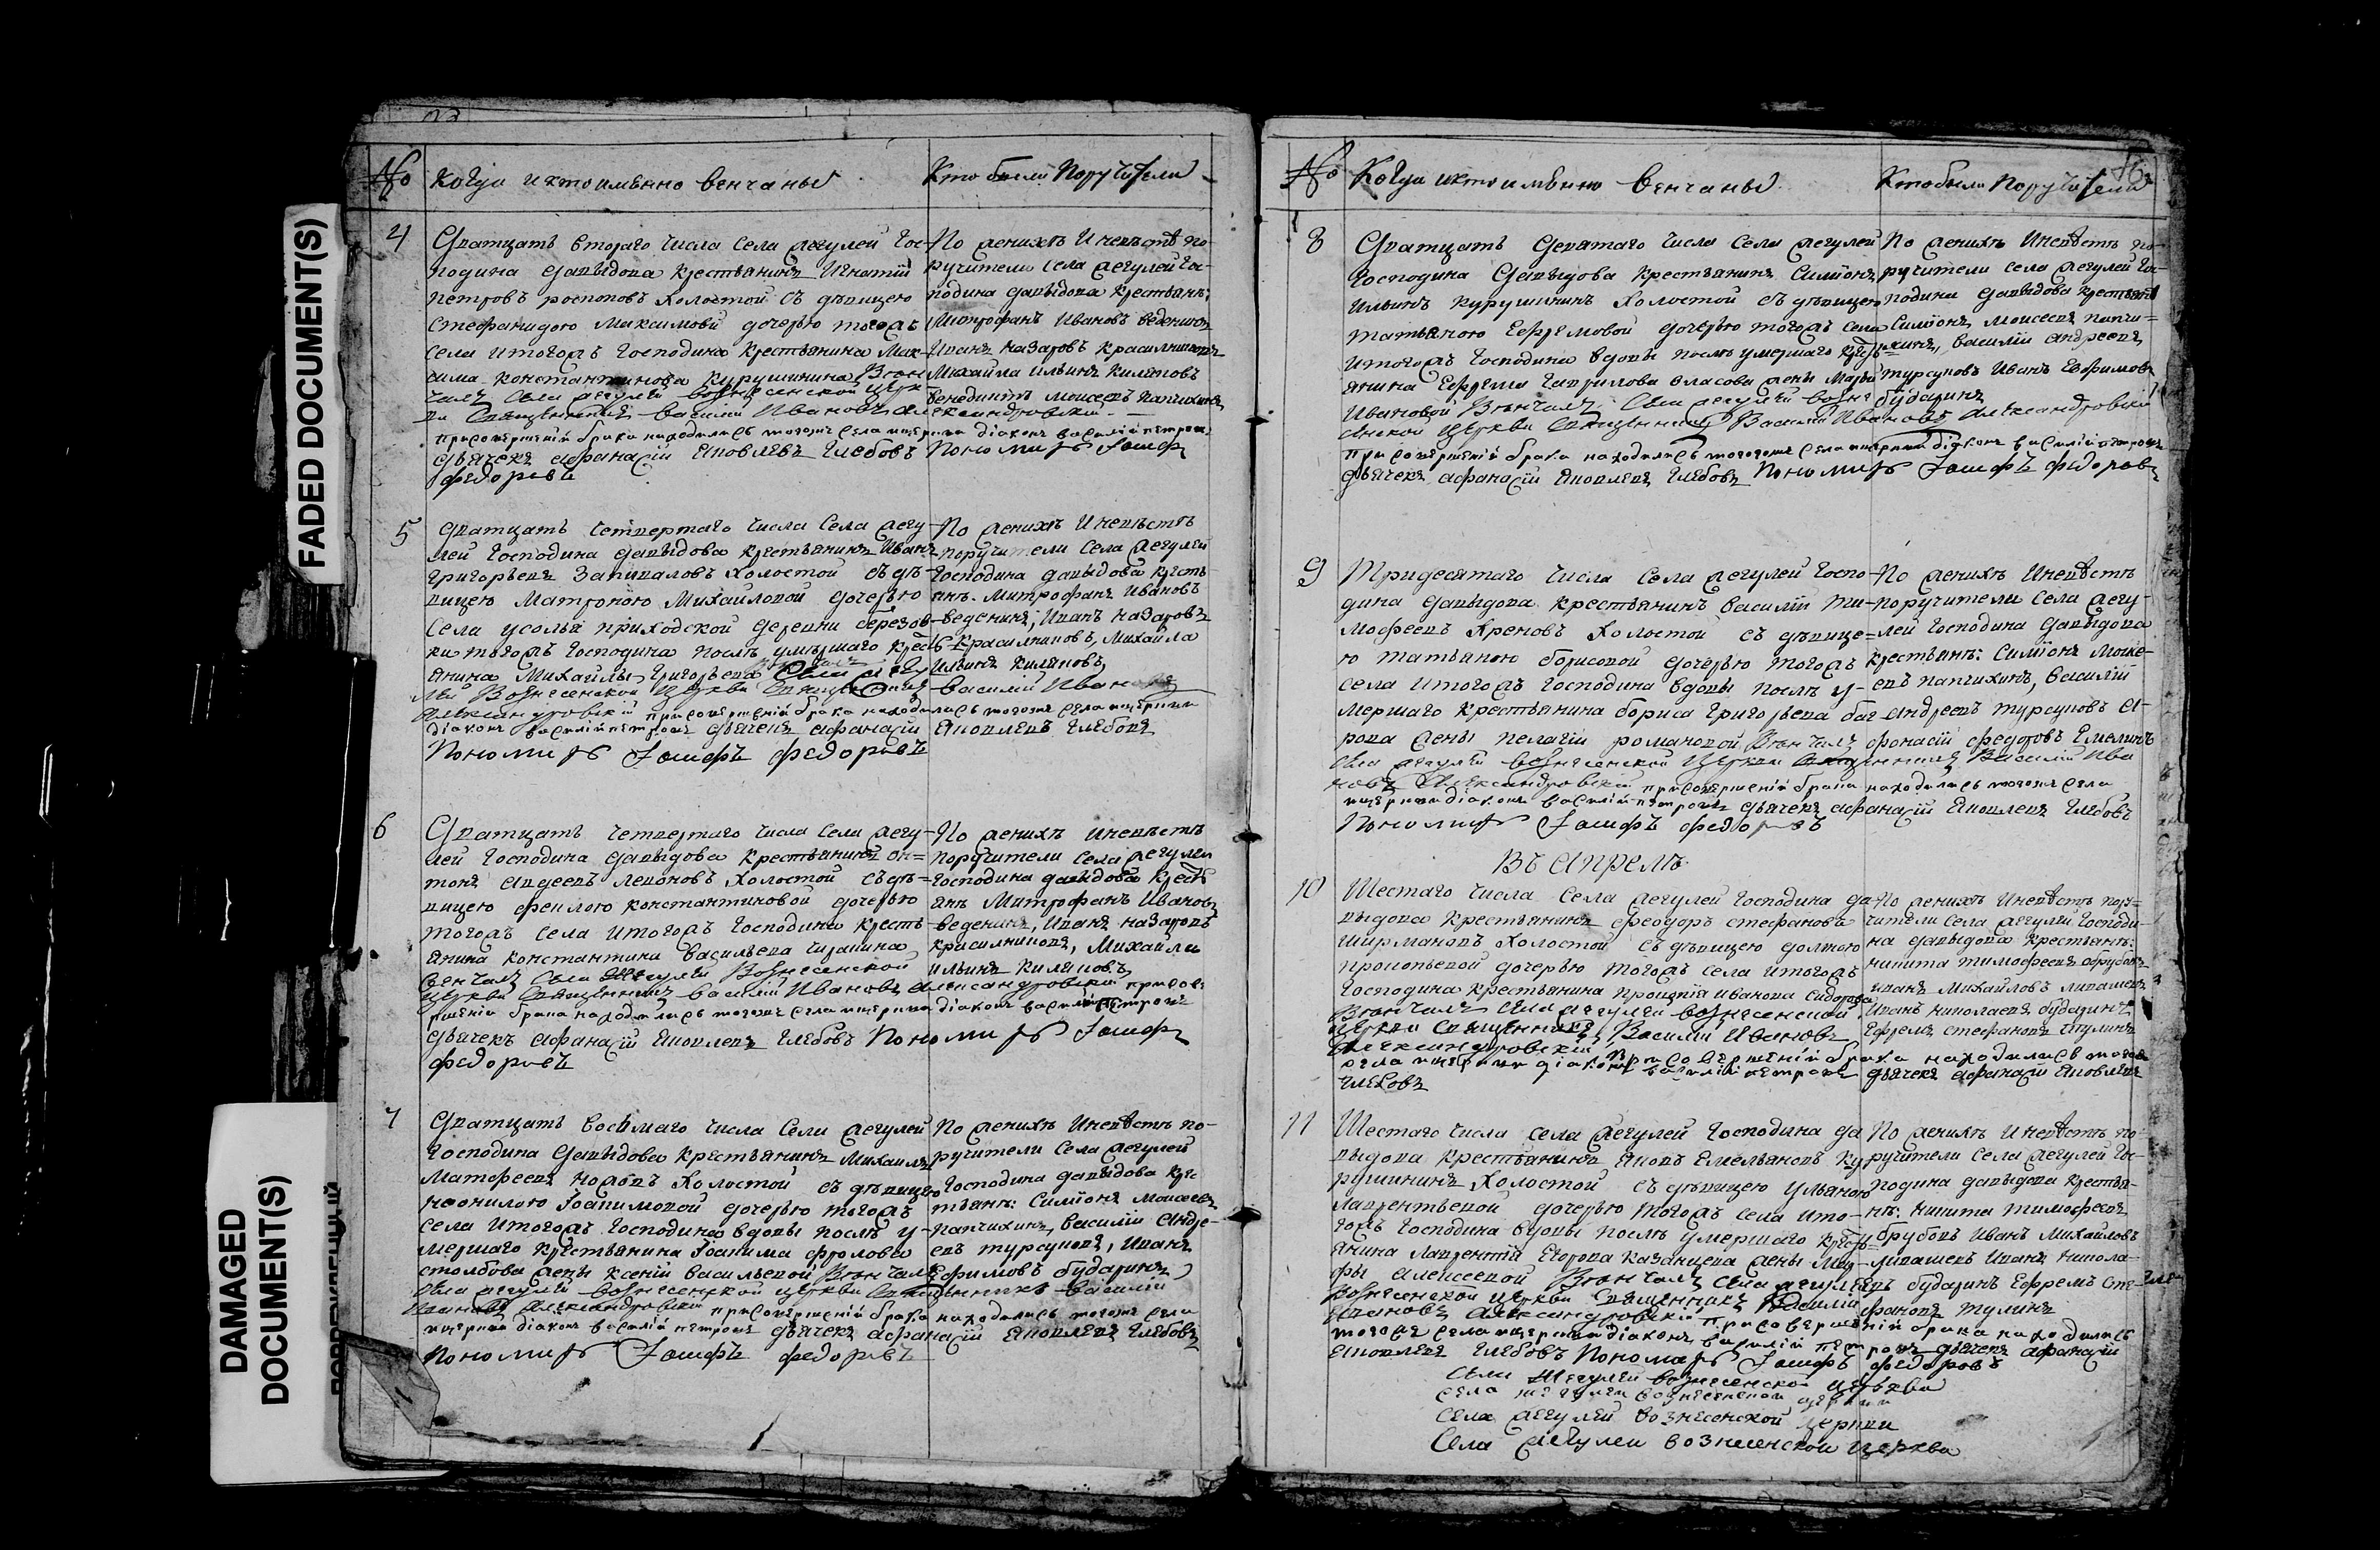 FADED DOCUMENT(S)
DAMAGED
DOCUMENT(S)
№ Когда и кто имянно венчаны Кто были Поручители
4 Дватцать втораго числа села Жегулей Гос-
подина Давыдова крестьянинъ Игнатій
Петровъ роспоповъ холостой съ девицею
Стефанидою Максимовой дочерью тогожъ
села итогожъ Господина крестьянина Мак-
сима Константинова Курушинина Вѣн
чалъ Села Жегулей Вознесенской церк-
ви Священникъ Василій Ивановъ Александровскій
присовершеніи брака находились тогожъ села церкви діаконъ василій петровъ
Дьячекъ Афанасій Яковлевъ Глебовъ Пономарь Іосифъ
федоровъ
По женихѣ и невѣстѣ по-
ручители села Жегулей Гос-
подина давыдова крестьянѣ:
Митрофанъ Ивановъ веденинъ
Иванъ назаровъ красилниковъ
Михайла Ильинъ Киляковъ
венедиктъ Моисеевъ папчихинъ
5 Дватцать четвертаго числа села Жегу-
лей Господина Давыдова крестьянинъ Иванъ
Григорьевъ Запиваловъ холостой съ дѣ-
вицею Матроною Михайловой дочерью
села усолья приходской деревни березов-
ки тогожъ Господина послѣ умершаго крест-
янина Михайлы Григорьева Села Жегу
лей Вознесенской Церкви Священникъ Василій Ивановъ
Александровскій присовершеніи брака находились тогожъ села церкви
діаконъ василій петровъ Дьячекъ Афанасій Яковлевъ Глебовъ
Пономарь Іосифъ федоровъ
По женихѣ и невѣстѣ
поручители села Жегулей
Господина давыдова кресть
янѣ. Митрофанъ Ивановъ
веденинъ, Иванъ назаровъ
красилниковъ, Михайла
Ильинъ Киляковъ
6 Дватцать четвертаго числа села Жегу-
лей Господина Давыдова крестьянинъ Он=
тонъ Авдеевъ Леоновъ холостой съ дѣ=
вицею феклою Константиновой дочерью
тогожъ села итогожъ Господина кресть
янина Константина Васильева
Венчалъ Села Жегулей Вознесенской
Церкви Священникъ Василій Ивановъ Александровскій присове
ршеніи брака находились тогожъ села церкви діаконъ василій петровъ
Дьячекъ Афанасій Яковлевъ Глебовъ Пономарь Іосифъ
федоровъ
По женихѣ и невѣстѣ
поручители села Жегулей
Господина давыдова кресть
янѣ Митрофанъ Ивановъ
веденинъ, Иванъ назаровъ
красилниковъ, Михайла
Ильинъ Киляковъ
7 Дватцать восьмаго числа села Жегулей
Господина Давыдова крестьянинъ Михаилъ
Матфеевъ холостой съ дѣвицею
неонилою Іоакимовой дочерью тогожъ
села итогожъ Господина вдовы послѣ у-
мершаго крестьянина Іоакима фролова
столбова жены Ксеніи Васильевой Вѣнчалъ
Села Жегулей Вознесенской церкви Священникъ Василій
Ивановъ Александровскій присовершеніи брака находились тогожъ села
церкви діаконъ василій петровъ Дьячекъ Афанасій Яковлевъ Глебовъ
Пономарь Іосифъ федоровъ
По женихѣ и невѣстѣ по-
ручители села Жегулей
Господина давыдова крес
тьянѣ: Симіонъ Моисеевъ
папчихинъ, Василій Андре-
евъ турсуковъ, Иванъ
Ефимовъ бударинъ
№ Когда и кто имянно венчаны Кто были Поручители
8 Дватцать Девятаго числа села Жегулей
Господина Давыдова крестьянинъ Симіонъ
Ильинъ Курушинъ холостой съ дѣвицею
татьяною Ефремовой дочерью тогожъ села
итогожъ Господина вдовы послѣ умершаго крест
янина Ефрема Гаврилова власова жены Марьи
Ивановой Вѣнчалъ Села Жегулей Вознес
енской Церкви Священникъ Василій Ивановъ Александровскій
присовершеніи брака находились тогожъ села церкви діаконъ василій петровъ
Дьячекъ Афанасій Яковлевъ Глебовъ Пономарь Іосифъ федоровъ
По женихѣ и невѣстѣ по-
ручители села Жегулей Гос-
подина Давыдова крестьянѣ
Симіонъ Моисеевъ папчи=
хинъ, василій андреевъ
турсуковъ Иванъ Евфимовъ
бударинъ
9 Тридесятаго числа села Жегулей Госпо-
дина Давыдова крестьянинъ василій Ти-
мофеевъ Хреновъ холостой съ дѣвице=
ю татьяною борисовой дочерью тогожъ
села итогожъ Господина вдовы послѣ у-
мершаго крестьянина бориса Григорьева баг
рова жены пелагіи романовой Вѣнчалъ
Села Жегулей Вознесенской Церкви Священникъ Василій Ива
новъ Александровскій присовершеніи брака находились тогожъ села
церкви діаконъ василій петровъ Дьячекъ Афанасій Яковлевъ Глебовъ
Пономарь Іосифъ федоровъ
По женихѣ и невѣстѣ
поручители села Жегу-
лей Господина Давыдова
крестьянѣ: Симіонъ Моисе-
евъ папчихинъ, Василій
Андреевъ турсуковъ А-
фонасій федотовъ Емелинъ
Въ Апрелѣ
10 Шестаго числа села Жегулей Господина да-
выдова крестьянинъ феодоръ стефановъ
Ширмановъ холостой съ дѣвицею
Прокопьевой дочерью тогожъ села итогожъ
Господина крестьянина Прокопія Иванова Сидорова
Вѣнчалъ Села Жегулей Вознесенской
Церкви Священникъ Василій Ивановъ
Александровскій присовершеніи брака находились тогожъ
села церкви діаконъ василій петровъ Дьячекъ Афанасій Яковлевъ
Глебовъ
По женихѣ и невѣстѣ пору=
чители села Жегулей Господи-
на давыдова крестьянѣ:
никита тимофеевъ
иванъ Михайловъ
Иванъ николаевъ бударинъ
Ефремъ стефановъ тулинъ
11 Шестаго числа села Жегулей Господина да
выдова крестьянинъ Яковъ Емельяновъ Ку
рушинъ холостой съ дѣвицею Ульяною
Лаврентьевой дочерью тогожъ села ито-
гожъ Господина вдовы послѣ умершаго крест
янина Лаврентія Егорова казанцева жены Мар-
фы Алексеевой Вѣнчалъ Села Жегулей
Вознесенской церкви Священникъ Василій
Ивановъ Александровскій присовершеніи брака находились
тогожъ села церкви діаконъ василій петровъ дьячекъ афанасій
Яковлевъ Глебовъ Пономарь Іосифъ федоровъ
По женихѣ и невѣстѣ по
ручители села Жегулей Гос-
подина давыдова крестья-
нѣ: никита тимофеевъ
брусовъ Иванъ Михайловъ
Иванъ никола-
евъ бударинъ Ефремъ сте-
фановъ тулинъ
Села Жегулей Вознесенской церкви
села жегулей вознесенской церкви
Села Жегулей вознесенской церкви
Села Жегулей вознесенской церкви